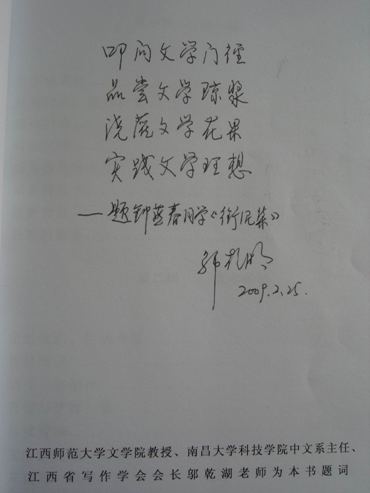 叩问文学门径
品尝文学琼浆
浇茂文学花果
实践文学理想
—题钟燕春同学《衔泥集》
2009.2.25.
江西师范大学文学院教授、南昌大学科技学院中文系主任、
江西省写作学会会长邬乾湖老师为本书题词